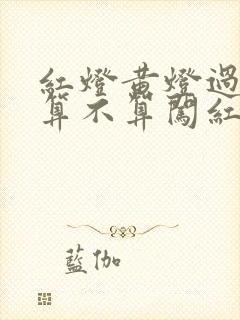 紅燈黃燈過
算不算闖紅
藍伽